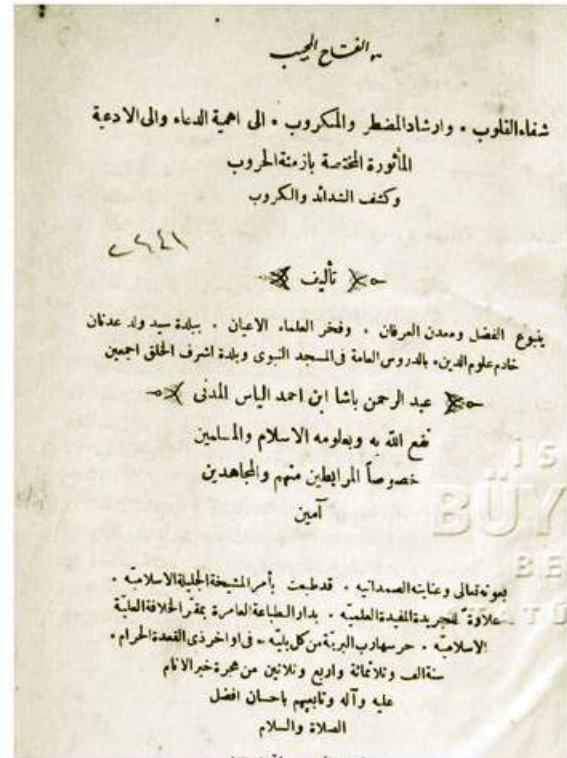 الفتاح المجيب
شفاء القلوب ٠ وارشاد المضطر والمكروب ٠ الى اهمية الدعاء والى الادعية
المأثورة المختصة بازمنة الحروب
وكشف الشدائد والكروب
تأليف
ينبوع الفضل ومعدن العرفان ٠ وفخر العلماء الاعيان ٠ ببلدة سيد ولد عدنان
خادم علوم الدين ٠ بالدروس العامة فى المسجد النبوى وبلدة اشرف الخلق اجمعين
عبد الرحمن باشا ابن احمد الياس المدنى
نفع الله به وبعلومه الاسلام والمسلمين
خصوصاً المرابطين منهم والمجاهدين
آمين
بعونه تعالى وعنايته الصمدانيه ٠ قد طبعت بأمر المشيخة الجليلة الاسلاميه ٠
علاوة للجريدة المفيدة العلميه ٠ بدار الطباعة العامرة بمقر الخلافة العليّة
الاسلاميّه ٠ حرسها رب البريّة من كل بليّه ٠ فى اواخر ذى القعدة الحرام ٠
سنة الف وثلاثمائة واربع وثلاثين من هجرة خير الانام
عليه وآله وتابعيهم باحسان افضل
الصلاة والسلام
İS
BÜY
BE
ATATÜ